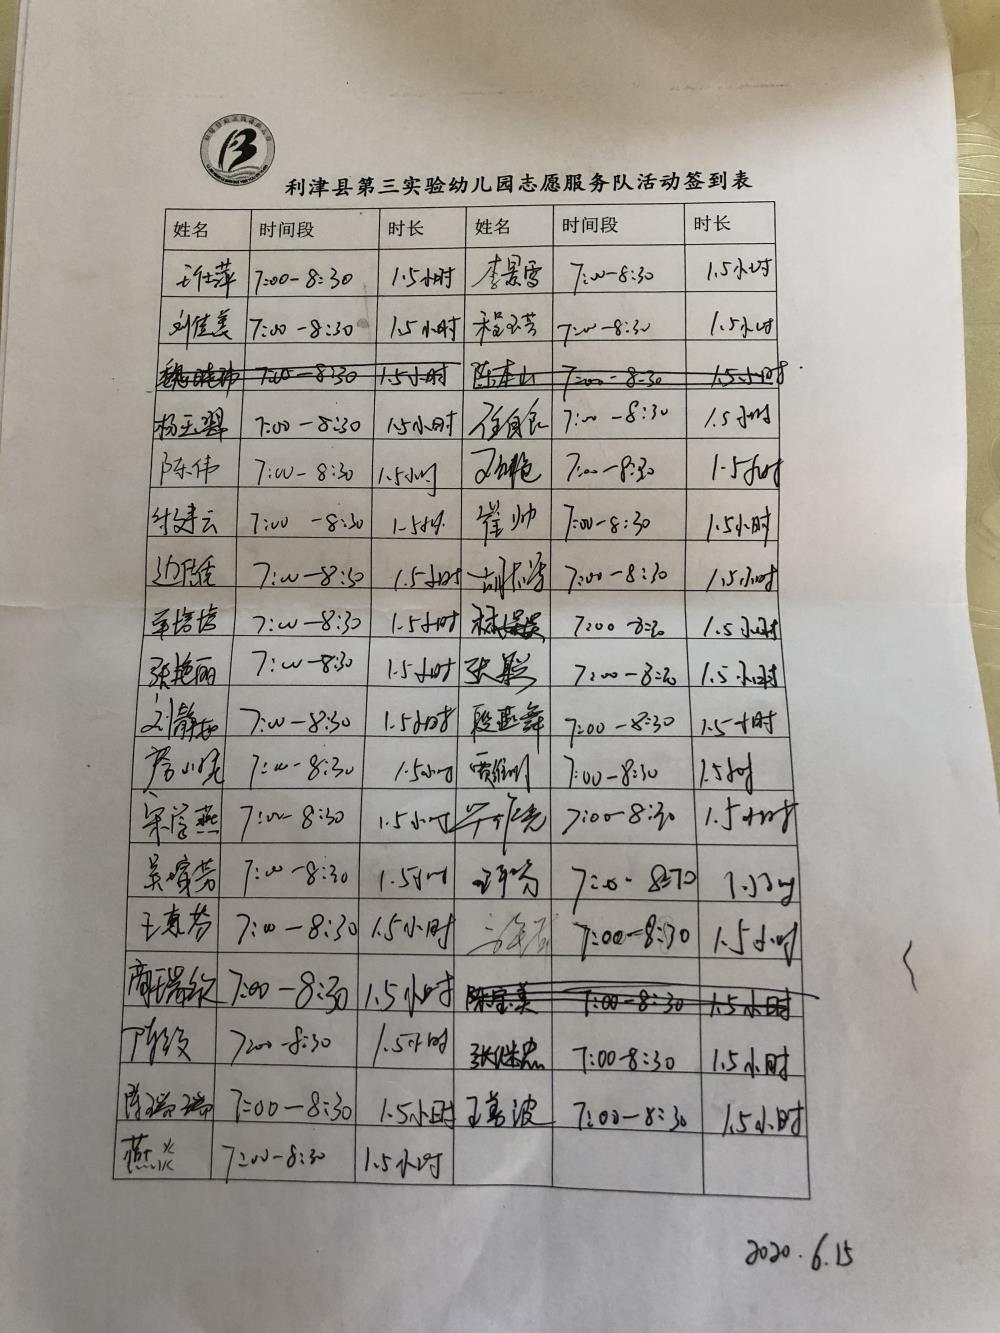 利津县第三实验幼儿园志愿服务队活动签到表
姓名 时间段 时长 姓名 时间段 时长
王仕萍 7:00-8:30 1.5小时 李景雪 7:00-8:30 1.5小时
刘佳美 7:00-8:30 1.5小时 程玉芸 7:00-8:30 1.5小时
魏晓玮 7:00-8:30 1.5小时 陈本山 7:00-8:30 1.5小时
杨玉翠 7:00-8:30 1.5小时 7:00-8:30 1.5小时
陈伟 7:00-8:30 1.5小时 7:00-8:30 1.5小时
付建云 7:00-8:30 1.5小时 崔帅 7:00-8:30 1.5小时
7:00-8:30 1.5小时 7:00-8:30 1.5小时
单培培 7:00-8:30 1.5小时 7:00 8:30 1.5小时
张艳丽 7:00-8:30 1.5小时 张聪 7:00-8:30 1.5小时
刘静 7:00-8:30 1.5小时 段燕舞 7:00-8:30 1.5小时
7:00-8:30 1.5小时 7:00-8:30 1.5小时
宋学燕 7:00-8:30 1.5小时 7:00-8:30 1.5小时
7:00-8:30 1.5小时 7:00-8:30 1.5小时
王 芬 7:00-8:30 1.5小时 7:00-8:30 1.5小时
商瑞欣 7:00-8:30 1.5小时 陈宝美 7:00-8:30 1.5小时
7:00-8:30 1.5小时 张继忠 7:00-8:30 1.5小时
陈瑞瑞 7:00-8:30 1.5小时 王 波 7:00-8:30 1.5小时
7:00-8:30 1.5小时
2020.6.15